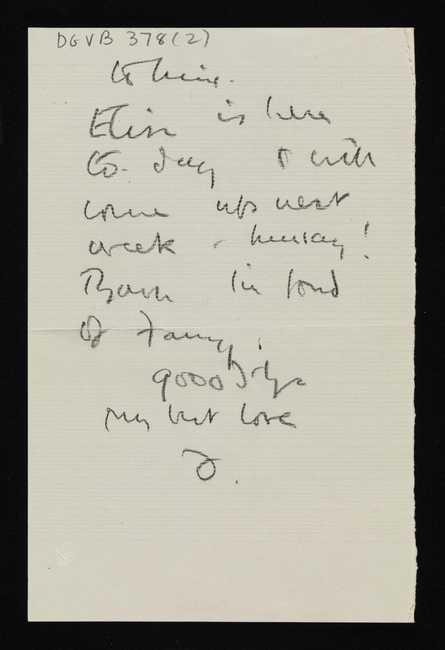 DGVB 378(2)
to hine.
Elise is here
to-day & will
come up next
week - hurray!
I'm fond
of Fanny!
goooodbye
My best love
J.